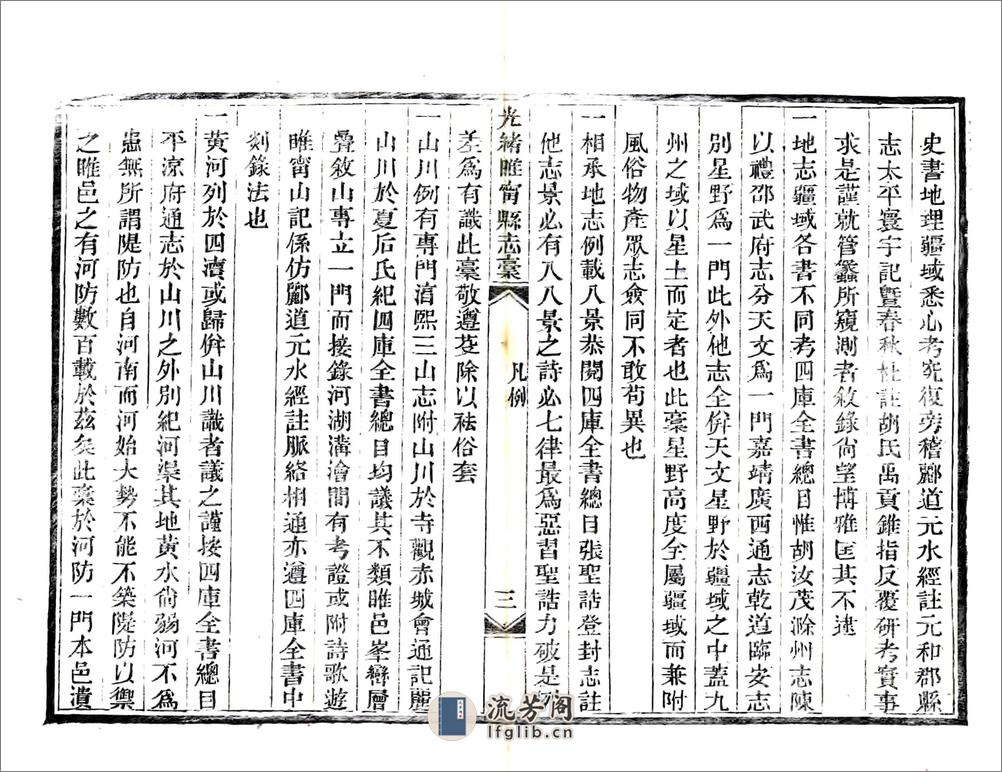 史書地理疆域悉心考究復旁稽酈道元水經註元和郡縣
志太平寰宇記暨春秋杜註胡氏禹貢錐指反覆硏考實事
求是謹就管蠡所窺測者敘錄尙望博雅匡其不逮
一地志疆域各書不同考四庫全書總目惟胡汝茂滁州志陳
以禮邵武府志分天文爲一門嘉靖廣西通志乾道臨安志
別星野爲一門此外他志全倂天文星野於疆域之中蓋九
州之域以星土而定者也此稾星野高度全屬疆域而兼附
風俗物產眾志僉同不敢苟異也
一相承地志例載八景恭閱四庫全書總目張聖誥登封志註
他志景必有八八景之詩必七律最爲惡習聖誥力破是例
光緒睢甯縣志稾
凡例
三
差爲有識此稾敬遵芟除以祛俗套
一山川例有專門滈熙三山志附山川於寺觀赤城會通記麗
山川於夏后氏紀四庫全書總目均議其不類睢邑峯巒層
疊敘山專立一門而接錄河湖溝澮間有考證或附詩歌遊
睢甯山記係仿酈道元水經註脈絡相通亦遵四庫全書中
剡錄法也
一黃河列於四瀆或歸倂山川識者議之謹按四庫全書總目
平涼府通志於山川之外別紀河渠其地黃水尙弱河不爲
患無所謂隄防也自河南而河始大勢不能不築隄防以禦
之睢邑之有河防數百載於茲矣此稾於河防一門本邑瀆
流芳阁
lfglib.cn